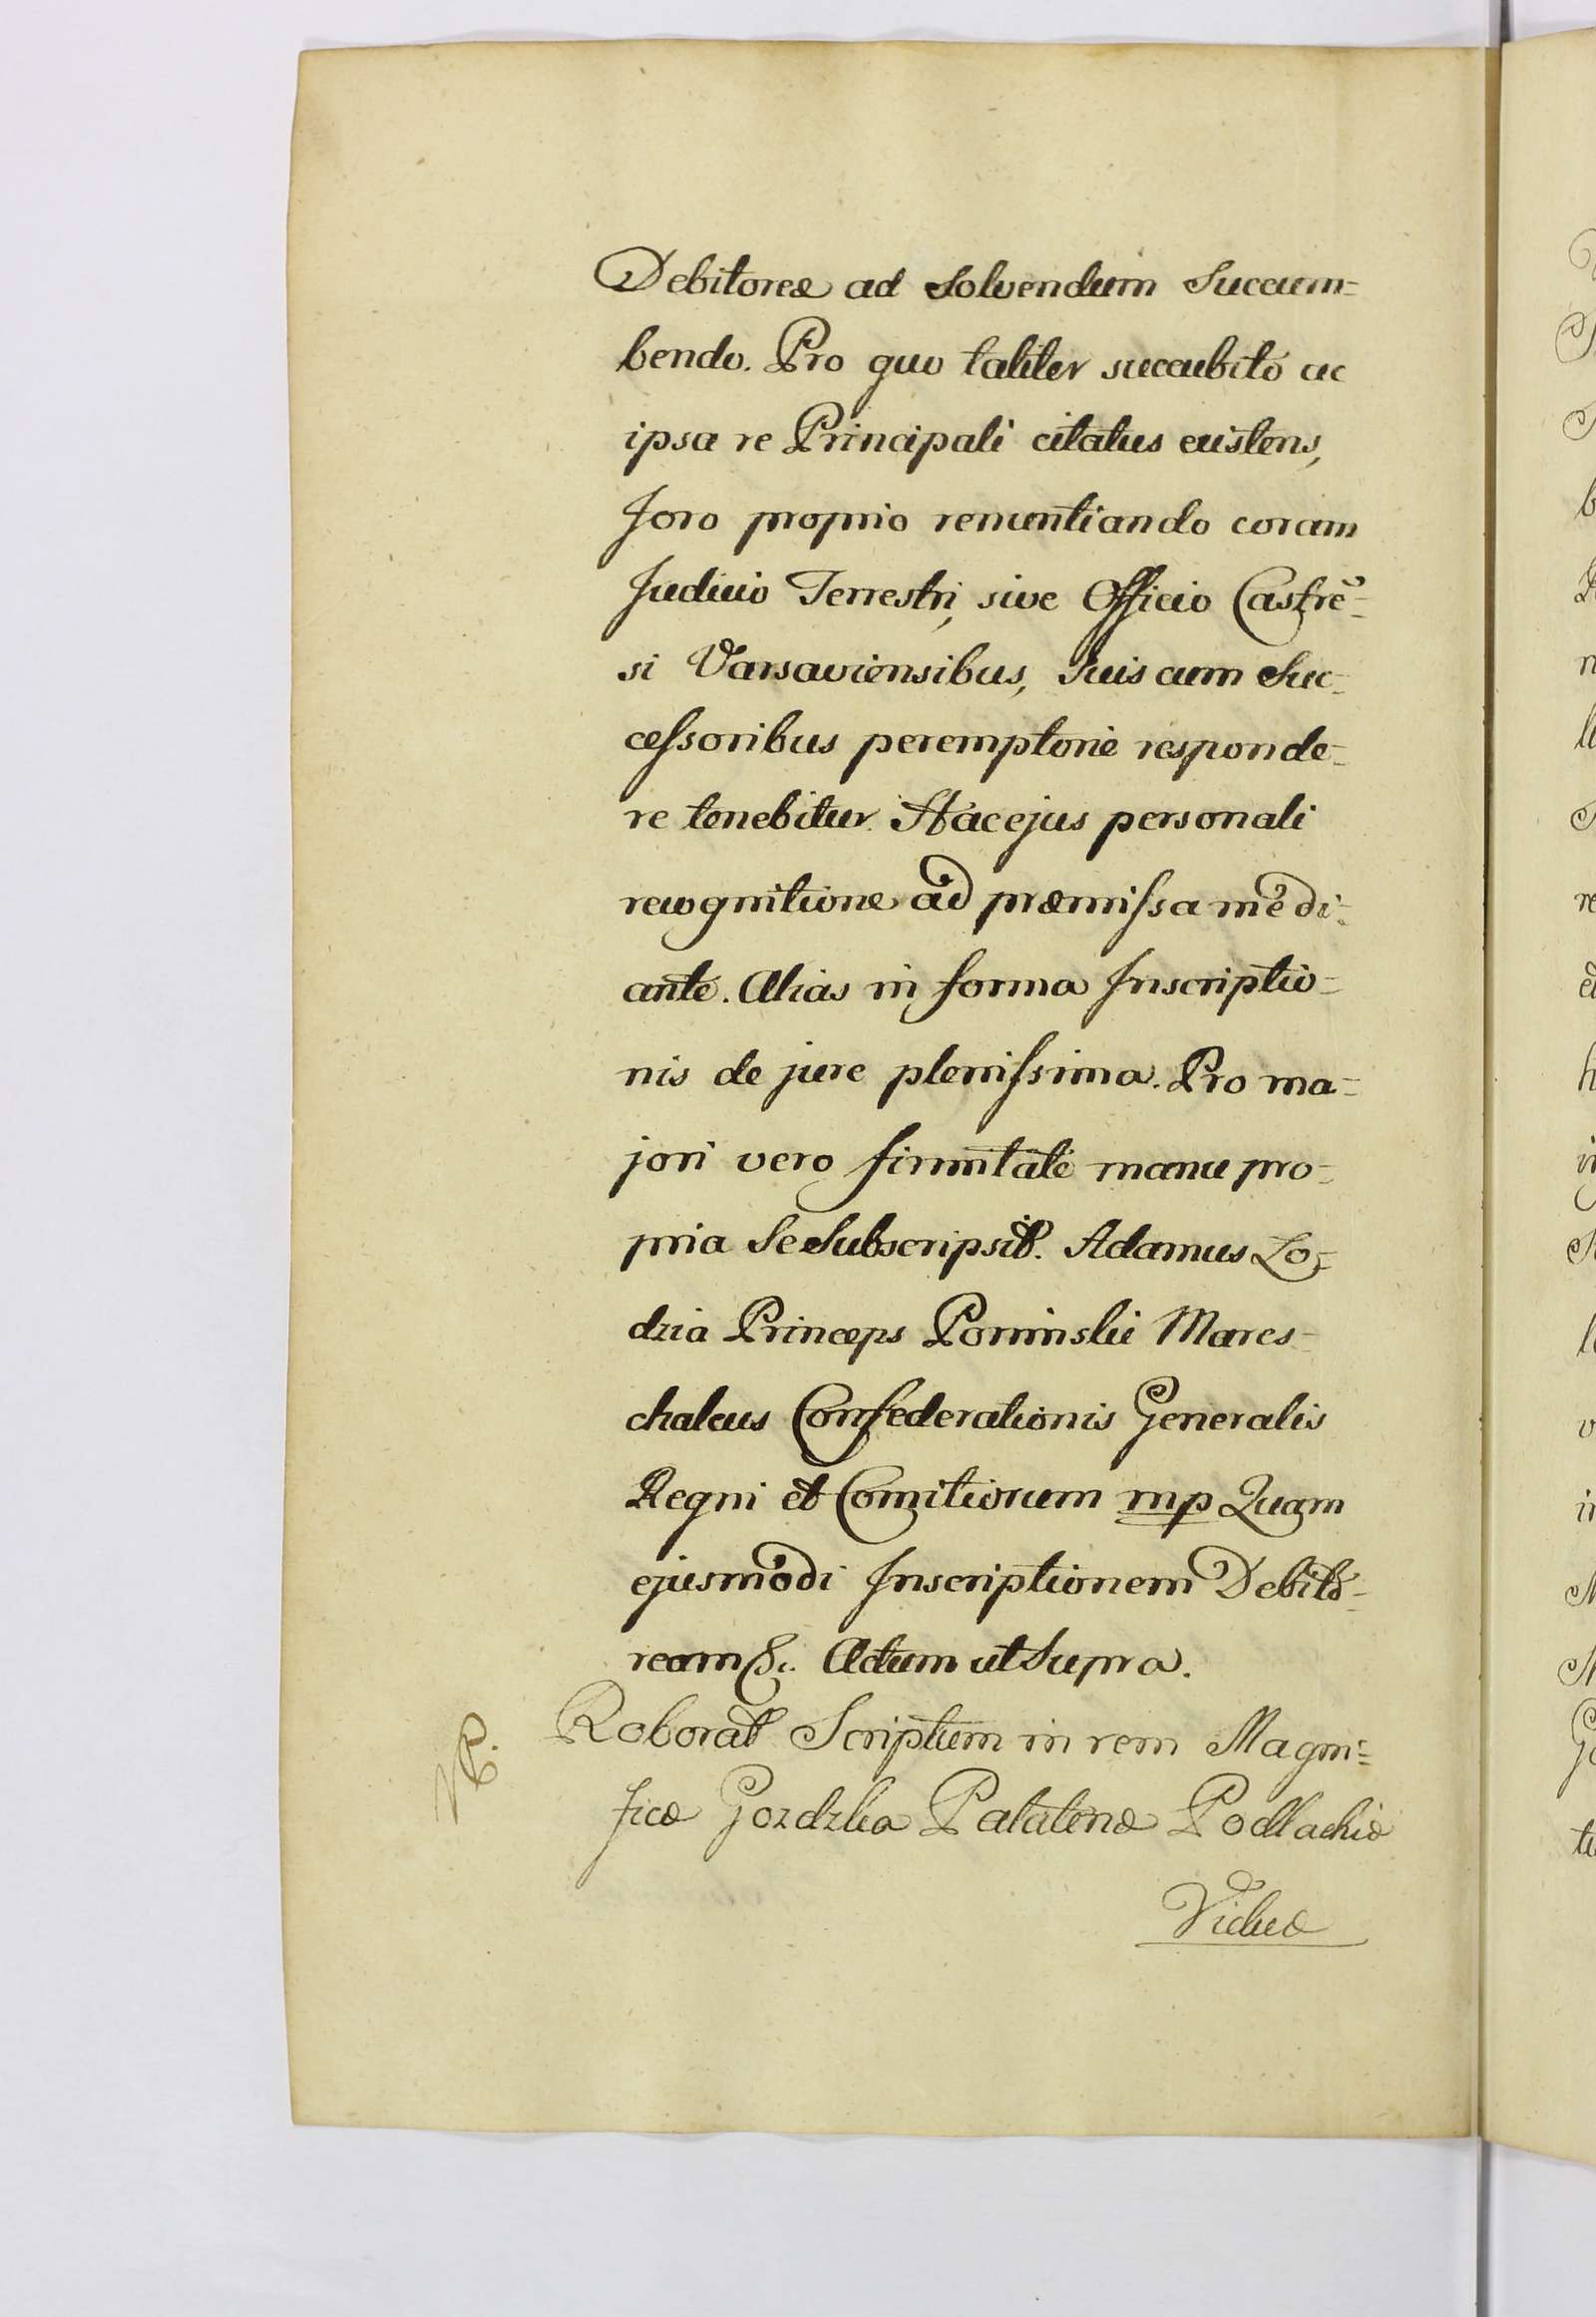 Debitoreæ ad Solvendum Succum=
bendo. Pro quo taliter succubitó ac
ipsa re Principali citatus existens,
Foro proprio renuntiando coram
Judicio Terrestri, sive Officio Castrē=
si Varsaviensibus, Suis cum Suc=
ceſsoribus peremptorie responde=
re tenebitur. Hac ejus personali
recognitione ad præmiſsa medi=
ante. Alias in forma Inscriptio=
nis de jure pleniſsima. Pro ma=
jori vero firmitate manu pro=
pria Se Subscripsit. Adamus Lo=
dzia Princeps Poninski Mares=
chalcus Confederationis Generalis
Regni et Comitiorum mp Quam
ejusmodi Inscriptionem Debito=
ream &. Actum ut Supra.
Roborat Scriptum in rem Magni=
ficæ Gozdzka Palatinæ Podlachiæ
Viduæ